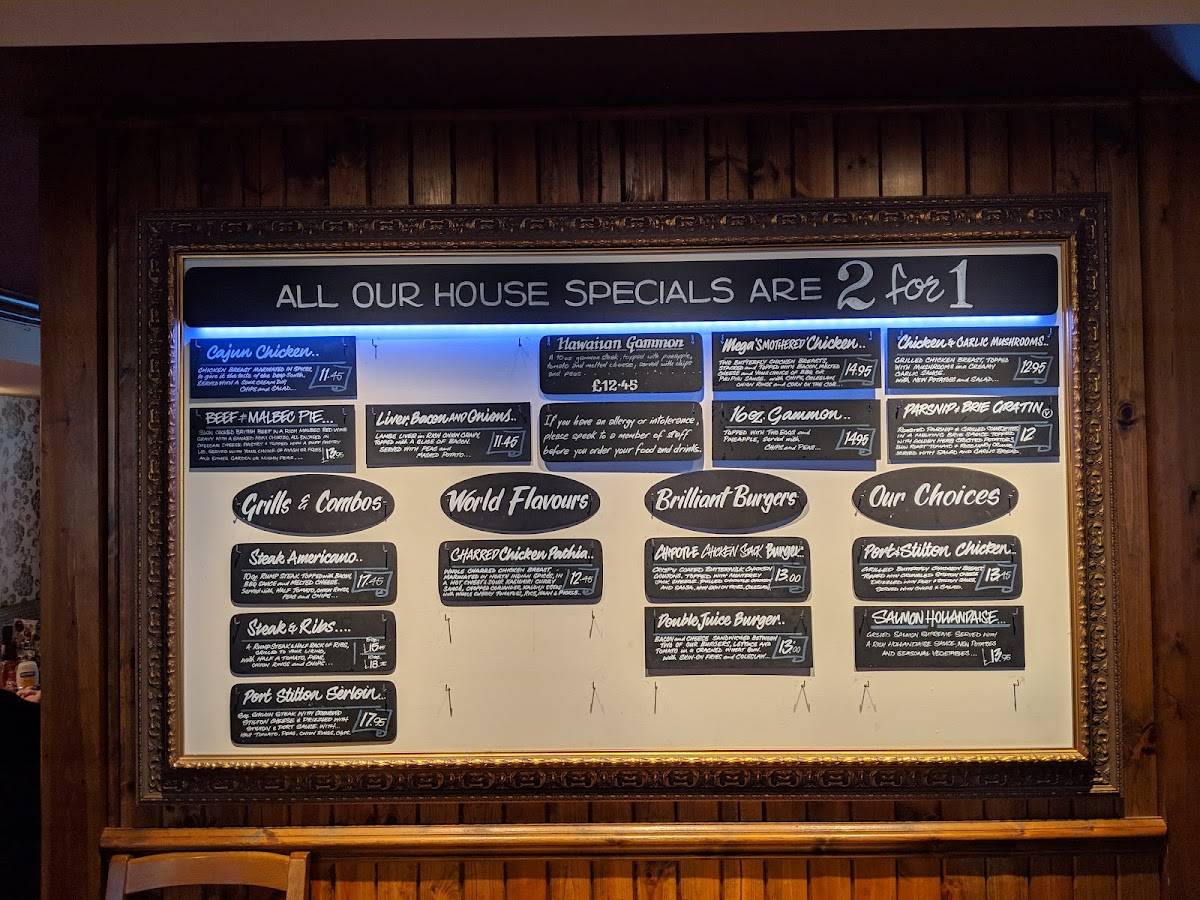 ALL OUR HOUSE SPECIALS ARE 2 for 1
Cajun Chicken..
CHICKEN BREAST MARINATED IN SPICES
to give it the taste of the Deep South,
SERVED WITH A SOUR CREAM DIP,
CHIPS and SALAD...
11.45
Hawaiian Gammon
A 10oz gammon steak, topped with pineapple,
tomato and melted cheese, served with chips
and peas
£12.45
Mega 'SMOTHERED' Chicken..
TWO BUTTERFLY CHICKEN BREASTS,
STACKED and TOPPED WITH BACON, MELTED
CHEESE and YOUR CHOICE OF BBQ OR
PERI PERI SAUCE. with CHIPS, COLESLAW
ONION RINGS and CORN ON THE COB...
14.95
Chicken & GARLIC MUSHROOMS...
GRILLED CHICKEN BREAST, TOPPED
WITH MUSHROOMS in a CREAMY
GARLIC SAUCE.
with NEW POTATOES and SALAD...
12.95
BEEF & MALBEC PIE...
SLOW COOKED BRITISH BEEF IN A RICH MALBEC RED WINE
LID, SERVED WITH A YOUR CHOICE OF MASH OR FRIES
AND EITHER GARDEN OR MUSHY PEAS...
13.95
Liver, Bacon AND Onions..
LAMBS LIVER in RICH ONION GRAVY,
TOPPED with A SLICE OF BACON.
SERVED WITH PEAS and
MASHED POTATO...
11.45
If you have an allergy or intolerence,
please speak to a member of staff
before you order your food and drinks.
16oz. Gammon..
TOPPED WITH TWO EGGS and
PINEAPPLE, served with
CHIPS and PEAS...
14.95
PARSNIP & BRIE GRATIN V
ROASTED PARSNIP & GRILLED COURGETTES
IN A MELTING BRIE SAUCE TOPPED
WITH GOLDEN HERB GRATED POTATOES,
SERVED WITH SALAD AND GARLIC BREAD.
12
Grills & Combos
World Flavours
Brilliant Burgers
Our Choices
Steak Americano..
10oz RUMP STEAK TOPPED with BACON,
BBQ SAUCE and MELTED CHEESE.
Served with HALF TOMATO, ONION RINGS,
PEAS and CHIPS...
17.45
CHARRED Chicken Pathia..
WHOLE CHARRED CHICKEN BREAST,
MARINATED IN NORTH INDIAN SPICES, IN
A HOT SWEET & SOUR KACHERI CURRY
with WHOLE CHERRY TOMATOES, RICE, NAAN & PICKLE..
12.45
CHIPOTLE CHICKEN Stack Burger..
CRISPY COATED BUTTERMILK CHICKEN
GOUJONS, TOPPED WITH MONTEREY
JACK CHEESE,
AND SALSA,
13.00
Port & Stilton Chicken..
GRILLED BUTTERFLY CHICKEN BREAST
TOPPED with CRUMBLED STILTON CHEESE
DRIZZLED WITH PORT & STILTON SAUCE
SERVED with CHIPS & SALAD..
13.45
Steak & Ribs....
A RUMP STEAK & HALF RACK OF RIBS,
GRILLED TO YOUR LIKING,
with HALF A TOMATO, PEAS,
ONION RINGS and CHIPS...
Double Juice Burger..
BACON and CHEESE SANDWICHED BETWEEN
TWO OF OUR BURGERS, LETTUCE AND
TOMATO in A CRACKED WHEAT BUN.
with SKIN-ON FRIES AND COLESLAW...
13.00
SALMON HOLLANDAISE...
GRILLED SALMON SUPREME SERVED WITH
A RICH HOLLANDAISE SAUCE, NEW POTATOES
AND SEASONAL VEGETABLES...
13.95
Port Stilton Serloin..
8oz SIRLOIN STEAK WITH CRUMBLED
STILTON CHEESE & DRIZZLED WITH
STILTON & PORT SAUCE. WITH..
HALF TOMATO, PEAS, ONION RINGS, CHIPS
17.95